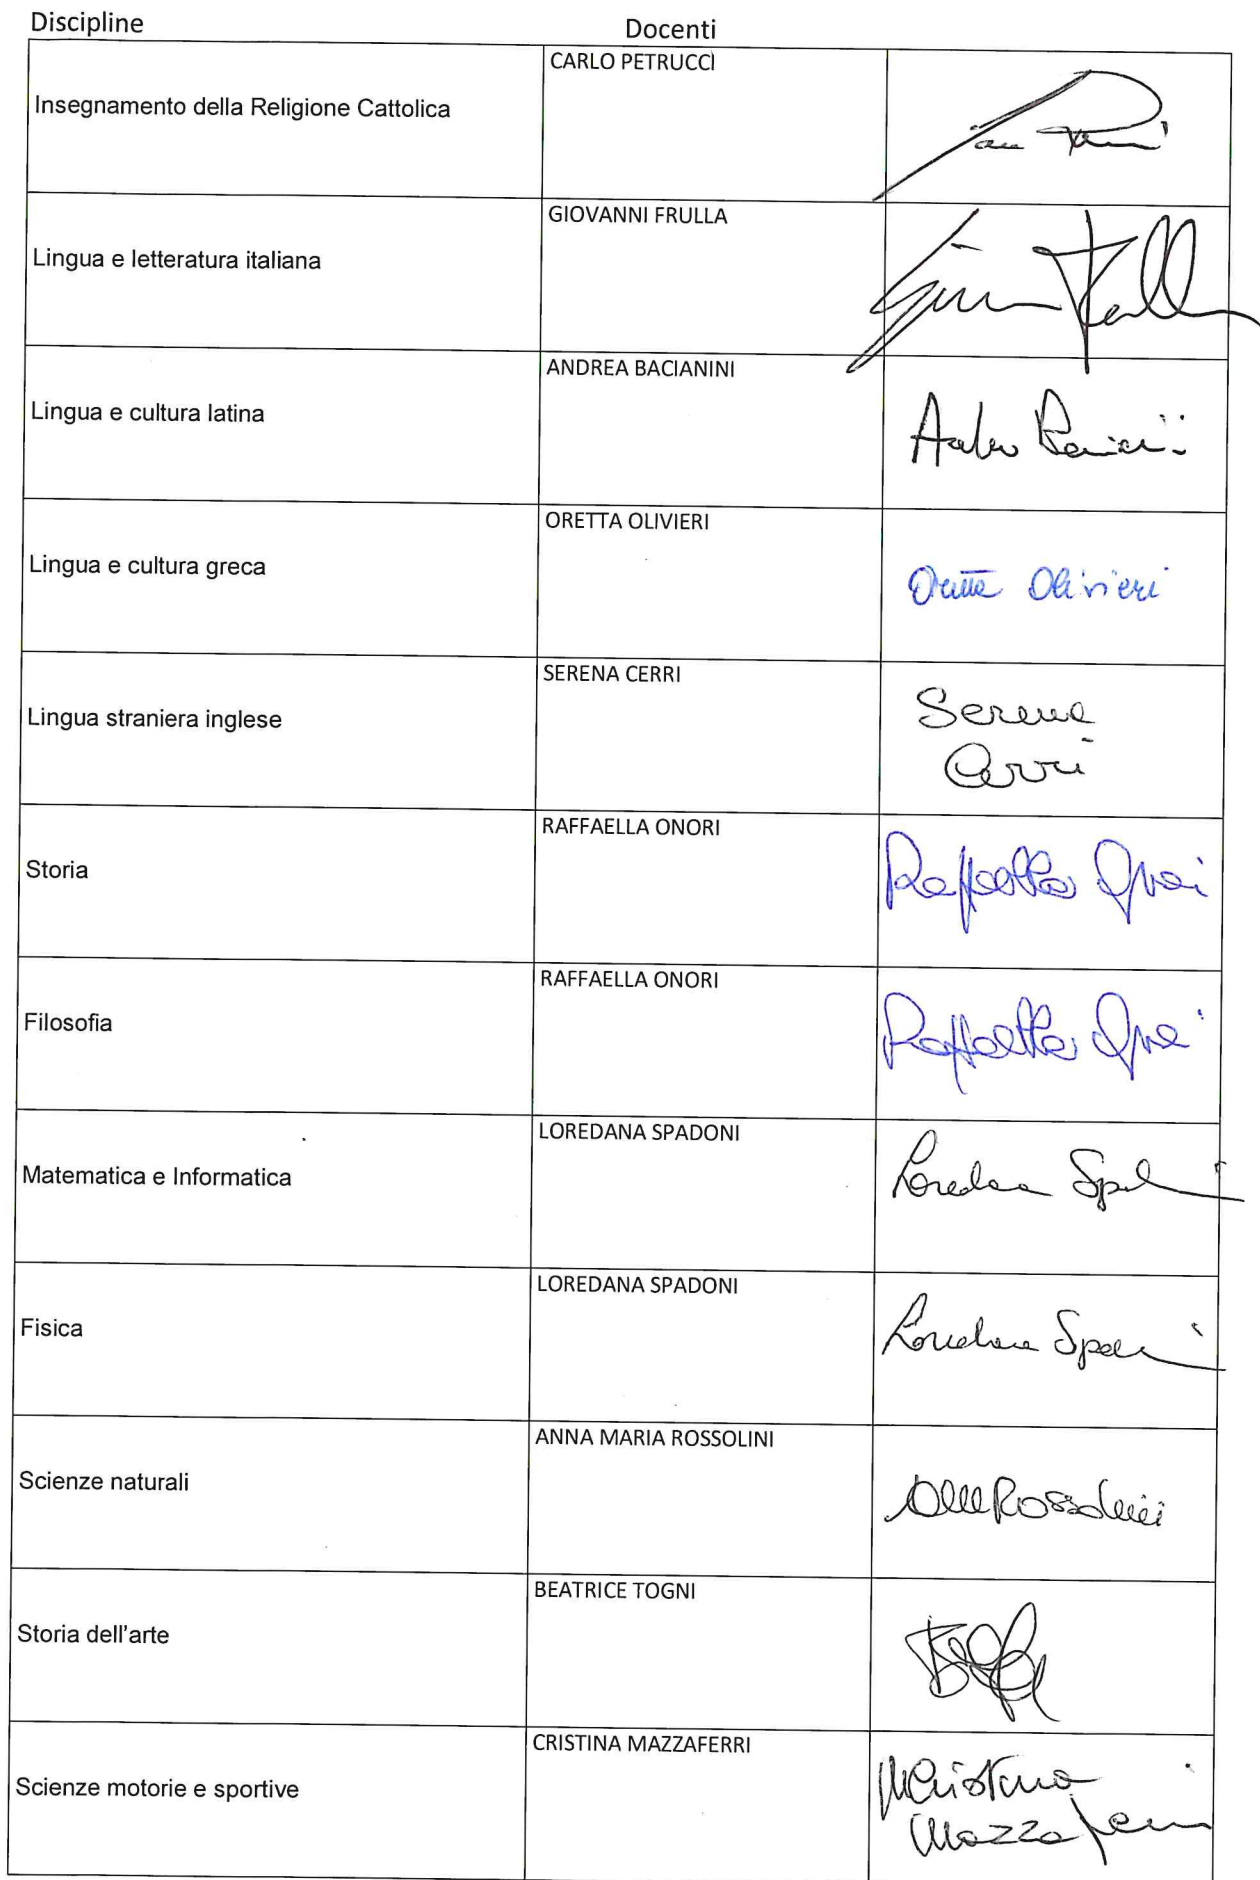 Discipline Docenti
Insegnamento della Religione Cattolica CARLO PETRUCCI
Lingua e letteratura italiana GIOVANNI FRULLA
Lingua e cultura latina ANDREA BACIANINI
Lingua e cultura greca ORETTA OLIVIERI Oretta Olivieri
Lingua straniera inglese SERENA CERRI Serena
Cerri
Storia RAFFAELLA ONORI Raffaella Onori
Filosofia RAFFAELLA ONORI Raffaella Onori
Matematica e Informatica LOREDANA SPADONI Loredana Spadoni
Fisica LOREDANA SPADONI Loredana Spadoni
Scienze naturali ANNA MARIA ROSSOLINI
Storia dell'arte BEATRICE TOGNI
Scienze motorie e sportive CRISTINA MAZZAFERRI
Mazzaferri